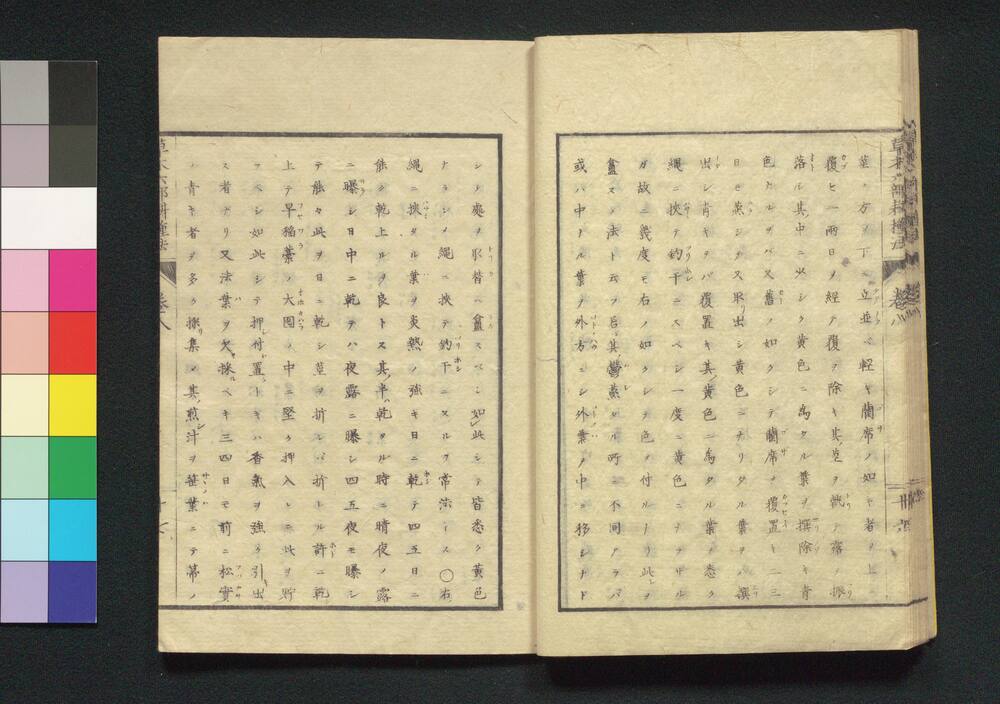 莖ノ方ヲ下ニ立並ベ軽キ藺席ノ如キ者ヲ上ニ
覆ヒ一兩日ヲ経テ覆ヲ除キ其莖ヲ戠テ露ヲ振
落シ其中ニ少シク黄色ニ為タル葉ヲ撰除キ青
色ナルヲバ又舊ノ如クシテ藺席ヲ覆置キ二三
日モ蒸シタ又取出シ黄色ニナリタル葉ヲバ撰
出シ青キヲバ覆置キ其黄色ニ為タル葉ヲ悉ク
縄ニ挾テ釣干ニスベシ一度ニ黄色ニナラザル
ガ故ニ幾度モ右ノ如クシテ色ノ付ルヲ此ヲ
畫スノ法ト云フ旨其鬱蒸シハ所ニ不同アラバ
或ハ中ナル葉ヲ外方ニシ外葉ヲ中ニ移シナド
シテ處ヲ取替ヘ畫スベシ如此シテ皆悉ク黄色
ナラシメ縄ニ挾テ釣干ニスルヲ常法トス〇右
縄ニ挾タル葉ヲ炎熱ノ強キ日ニ乾テ四五日ニ
能ク乾上ルヲ良トス其半乾タル時ニ晴夜ノ露
ニ曝シ日中ニ乾テハ夜露ニ曝シ四五夜モ曝シ
テ能々此ヲ日ニ乾シ莖ヲ折レバ折トル許ニ乾
上テ早稲藁ノ大圍ノ中ニ堅ク押入レニ此ヲ貯
フベシ如此シテ押付置トキハ香氣ヲ強ク引出
ス者ナリ又法葉ヲ欠採ベキ三四日モ前ニ松實
ノ青キ者ヲ多ク採集メ其煎汁ヲ笹葉ニテ箒ノ
草木六部耕種法
卷八